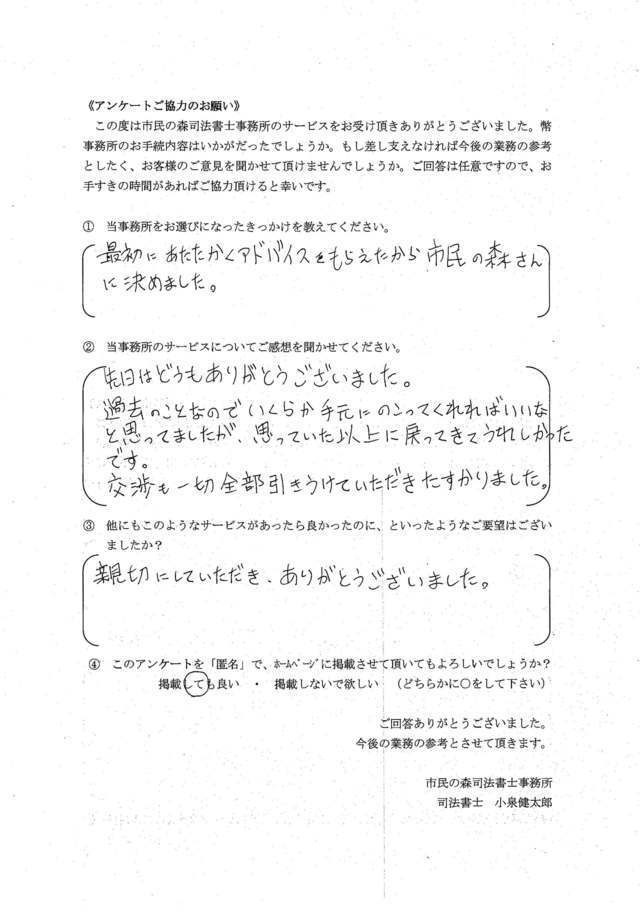 《アンケートご協力のお願い》
この度は市民の森司法書士事務所のサービスをお受け頂きありがとうございました。幣
事務所のお手続内容はいかがだったでしょうか。もし差し支えなければ今後の業務の参考
としたく、お客様のご意見を聞かせて頂けませんでしょうか。ご回答は任意ですので、お
手すきの時間があればご協力頂けると幸いです。
① 当事務所をお選びになったきっかけを教えてください。
最初にあたたかくアドバイスをもらえたから市民の森さん
に決めました。
② 当事務所のサービスについてご感想を聞かせてください。
先日はどうもありがとうございました。
過去のことなのでいくらか手元にのこってくれればいいな
と思ってましたが、思っていた以上に戻ってきてうれしかった
です。
交渉も一切全部引きうけていただきたすかりました。
③ 他にもこのようなサービスがあったら良かったのに、といったようなご要望はござい
ましたか？
親切にしていただき、ありがとうございました。
④ このアンケートを「匿名」で、ﾎｰﾑﾍﾟｰｼﾞに掲載させて頂いてもよろしいでしょうか？
掲載しても良い ・ 掲載しないで欲しい （どちらかに○をして下さい）
ご回答ありがとうございました。
今後の業務の参考とさせて頂きます。
市民の森司法書士事務所
司法書士 小泉健太郎